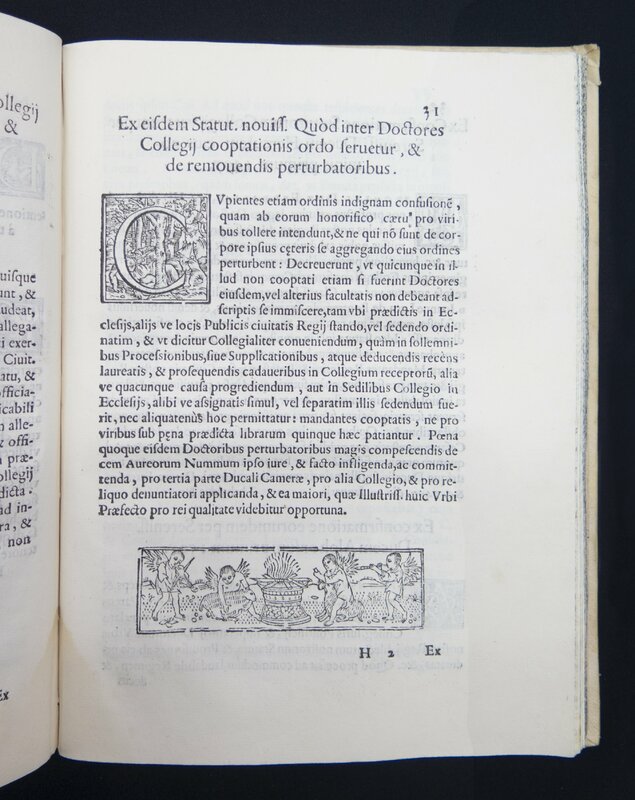 ollegij
&
uisque
unt, &
udeat,
allega-
i exer-
Ciuit.
atu, &
officia-
icabili
n alle-
& offi-
n præ-
ollegij
dicta.
ad in-
ra, &
non
Ex
31
Ex eisdem Statut. nouiss. Quòd inter Doctores
Collegij cooptationis ordo seruetur, &
de remouendis perturbatoribus.
CVpientes etiam ordinis indignam confusionē,
quam ab eorum honorifico cætu pro viri-
bus tollere intendunt, & ne qui nō sunt de cor-
pore ipsius cęteris se aggregando eius ordines
perturbent: Decreuerunt, vt quicunque in il-
lud non cooptati etiam si fuerint Doctores
eiusdem, vel alterius facultatis non debeant ad-
scriptis se immiscere, tam vbi prædictis in Ec-
clesijs, alijs ve locis Publicis ciuitatis Regij stando, vel sedendo ordi-
natim, & vt dicitur Collegialiter conueniendum, quàm in sollemni-
bus Processionibus, siue Supplicationibus, atque deducendis recèns
laureatis, & prosequendis cadaueribus in Collegium receptorū, alia
ve quacunque causa progrediendum, aut in Sedilibus Collegio in
Ecclesijs, alibi ve assignatis simul, vel separatim illis sedendum fue-
rit, nec aliquatenùs hoc permittatur: mandantes cooptatis, ne pro
viribus sub pęna prædicta librarum quinque hæc patiantur. Pœna
quoque eisdem Doctoribus perturbatoribus magis compescendis de
cem Aureorum Nummum ipso iure, & facto infligenda, ac commit-
tenda, pro tertia parte Ducali Cameræ, pro alia Collegio, & pro re-
liquo denuntiatori applicanda, & ea maiori, quæ Illustriss. huic Vrbi
Præfecto pro rei qualitate videbitur opportuna.
H 2 Ex